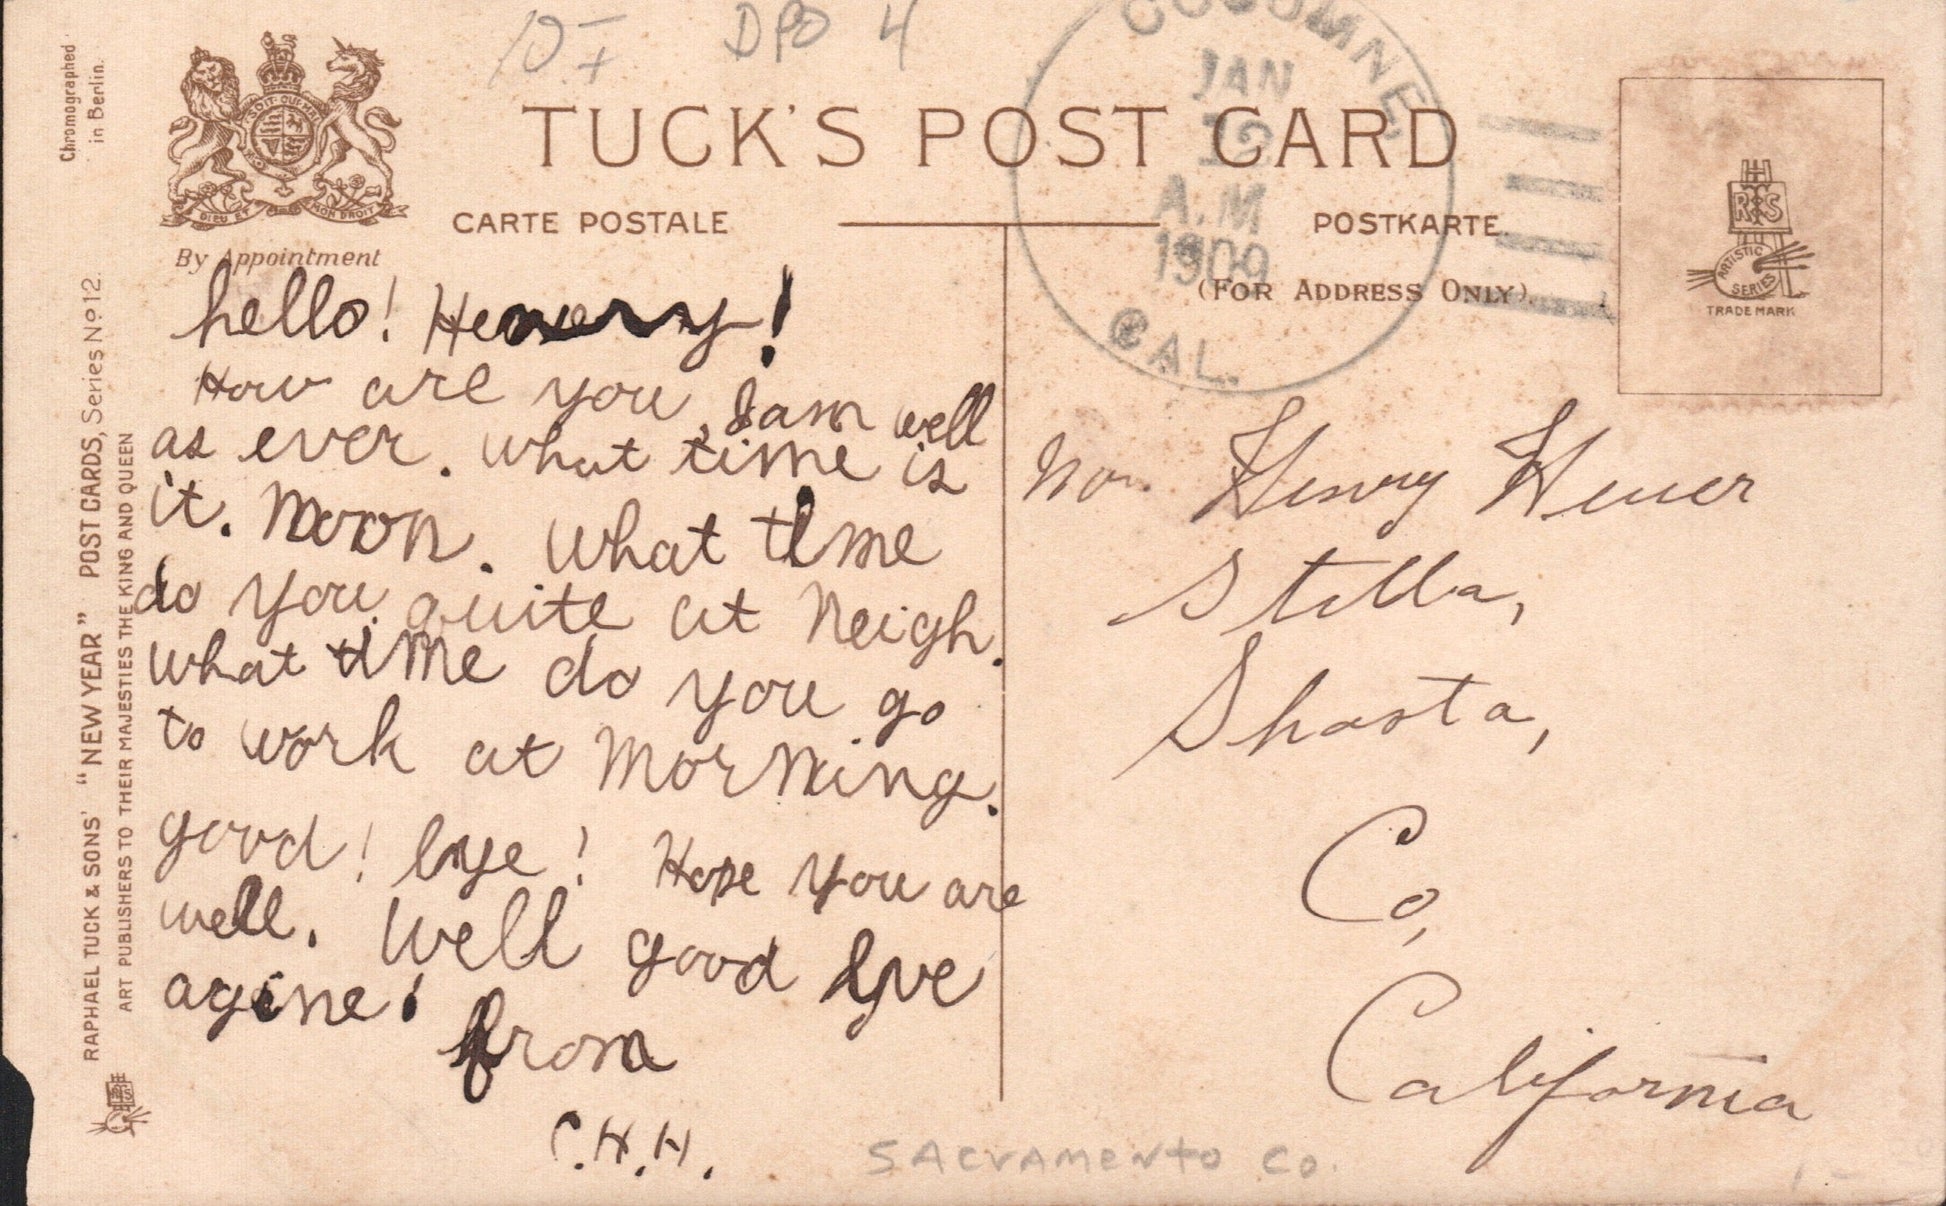 Chromographed
in Berlin.
10-
DPO 4
COSUMNE,
JAN
12
A.M
1909
CAL.
TUCK'S POST CARD
CARTE POSTALE
POSTKARTE.
(FOR ADDRESS ONLY).
DIEU ET MON DROIT
By Appointment
R T S
ARTISTIC
SERIES
TRADE MARK
RAPHAEL TUCK & SONS' "NEW YEAR" POST CARDS, Series No 12.
ART PUBLISHERS TO THEIR MAJESTIES THE KING AND QUEEN
hello! Henery!
How are you, I am well
as ever. What time is
it. Moon. What time
do you quite at Neigh.
What time do you go
to work at Morning.
good! bye! Hope you are
well. Well good bye
agine!
from
C.H.H.
Henry Heuer
Stella,
Shasta,
Co,
California
SACVAMENTO CO.